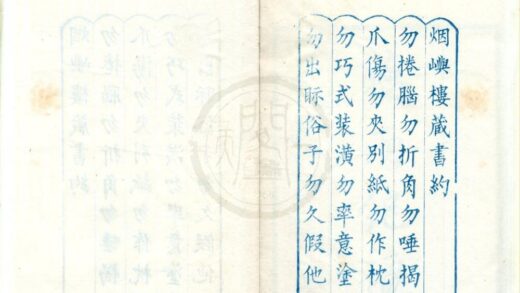 烟嶼樓藏書約
勿捲腦勿折角勿唾揭
爪傷勿夾別紙勿作枕
勿巧式裝潢勿率意塗
勿出眎俗子勿久假他